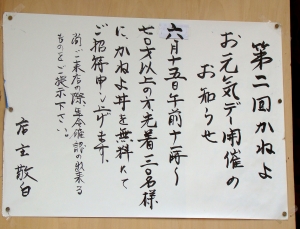 第二回かねよ
お元気デー開催の
お知らせ
六月十五日午前十一時〜
七〇才以上の方先着三〇名様
に、かねよ丼を無料にて
ご招待申し上げます。
尚ご来店の際生年確認の出来る
ものをご提示下さい。
店主敬白